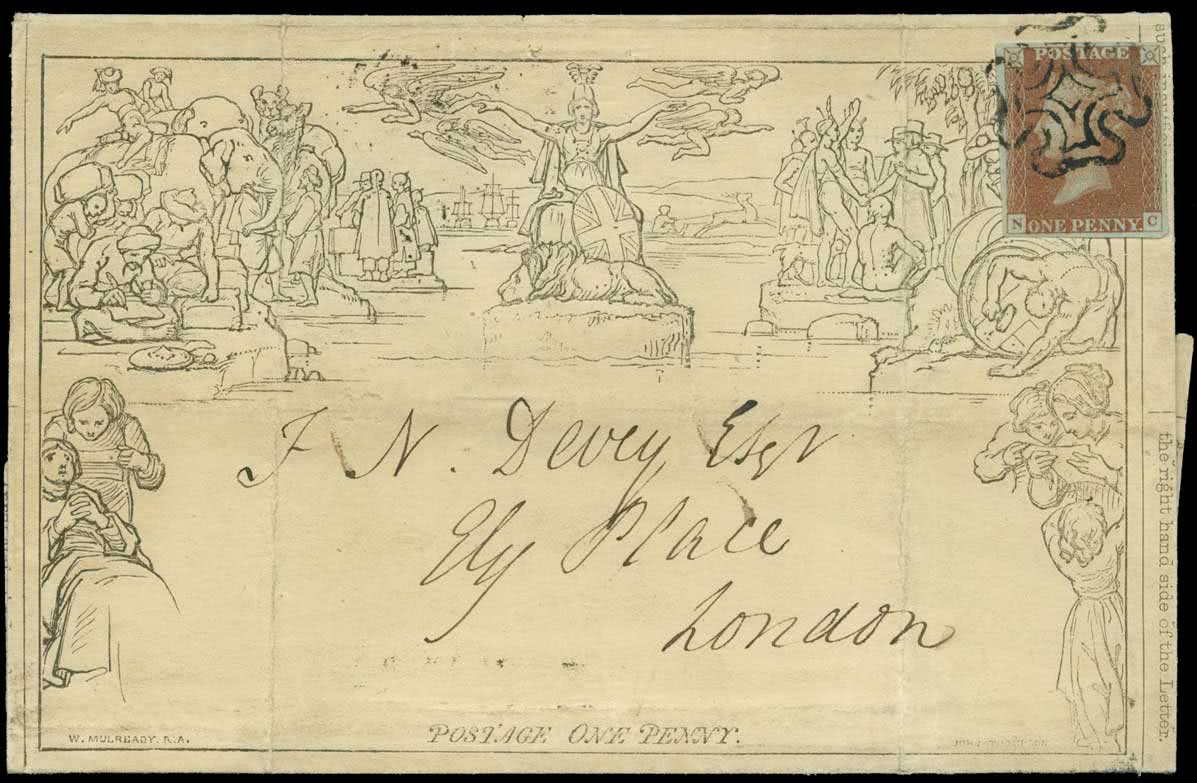 POSTAGE
N ONE PENNY C
F N. Devey Esqr
Ely Place
London
POSTAGE ONE PENNY.
W. MULREADY. R.A.
the right hand side of the Letter.